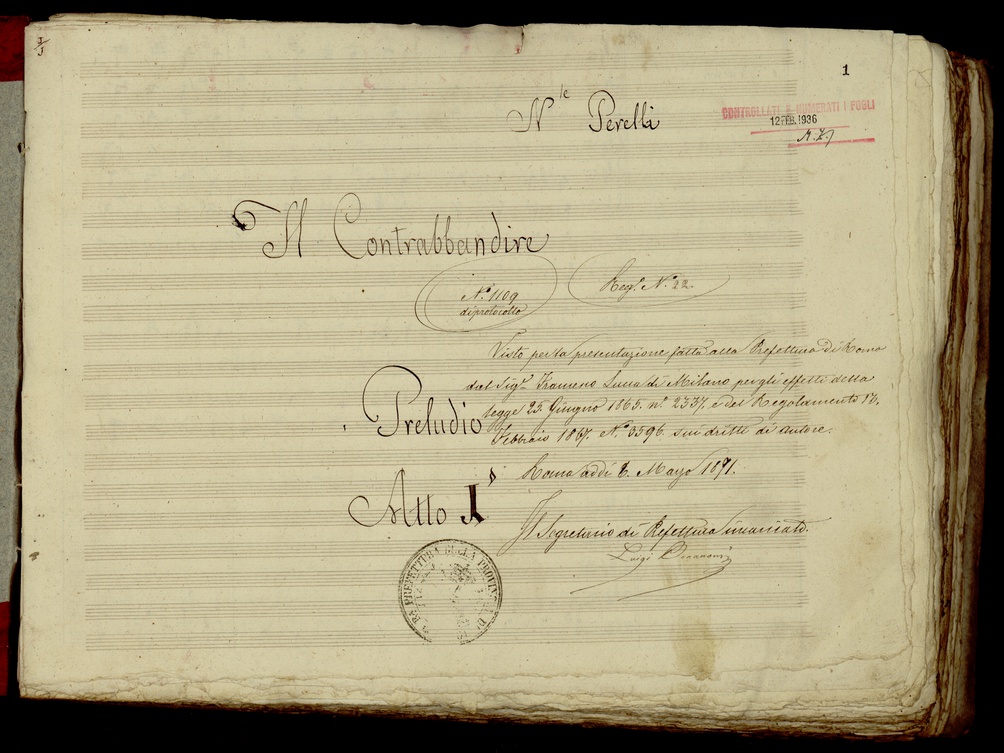 1
1
N.le Perelli
CONTROLLATI E NUMERATI I FOGLI
12 FEB. 1936
Il Contrabbandire
N.º 1109
di protocollo
Reg.º N.º 22.
Visto per la presentazione fatta alla Prefettura di Roma
dal Sig.r di Milano per gli effetti della
legge 25. Giugno 1865. nº 2337. e del Regolamento 13.
Febbraio 1867. N.º 3596. sui dritti di autore.
Preludio
Roma addì 8. Maggio 1871.
Atto I.º
Il Segretario di Prefettura incaricato.
Luigi
PREFETTURA DELLA PROVINCIA DI